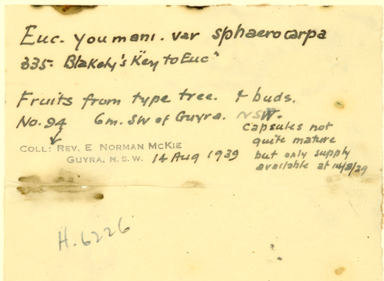 Euc. youmani. var sphaerocarpa
335. Blakely's "Key to Euc"
Fruits from type tree. & buds.
No. 94 6m. SW of Guyra. NSW.
Capsules not
quite mature
but only supply
available at 14/8/39
COLL: REV. E NORMAN MCKIE
GUYRA, N.S.W. 14 Aug 1939
H. 6226